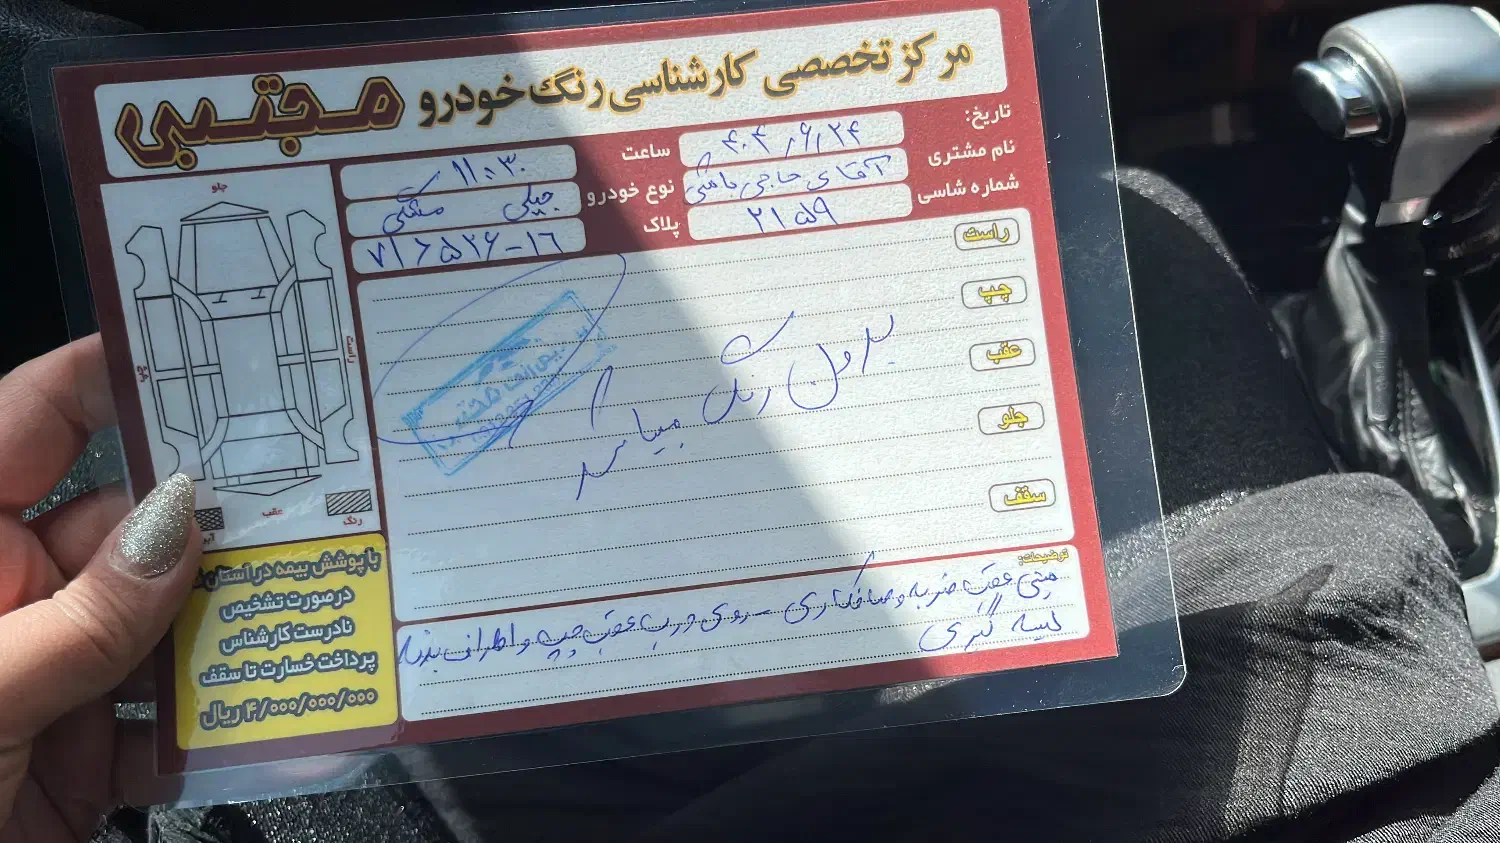 مرکز تخصصی کارشناسی رنگ خودرو مجتبی
تاریخ: ۴۰۴/۶/۲۴ ساعت ۱۱:۳۰
نام مشتری آقای حاجی باشی نوع خودرو جیلی مشکی
شماره شاسی ۲۱۵۹ پلاک ۷۱ ۵۲۶-۱۶
راست
چپ
عقب
جلو
سقف
بدون رنگ میباشد
جلو
راست
چپ
عقب
رنگ
توضیحات:
سینی عقب ضربه و صافکاری - روی درب عقب چپ و اطراف بدنه
لیسه گیری
با پوشش بیمه در استان
درصورت تشخیص
نادرست کارشناس
پرداخت خسارت تا سقف
۴/۰۰۰/۰۰۰/۰۰۰ ریال